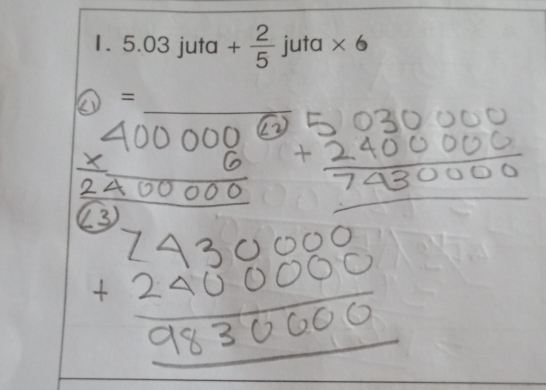 1. 5.03 juta + 2/5 juta × 6
(L1) =
400 000
× 6
2400000
(L2) 5 030 000
+ 2400 000
7430000
(L3)
7430000
+ 2400000
9830000